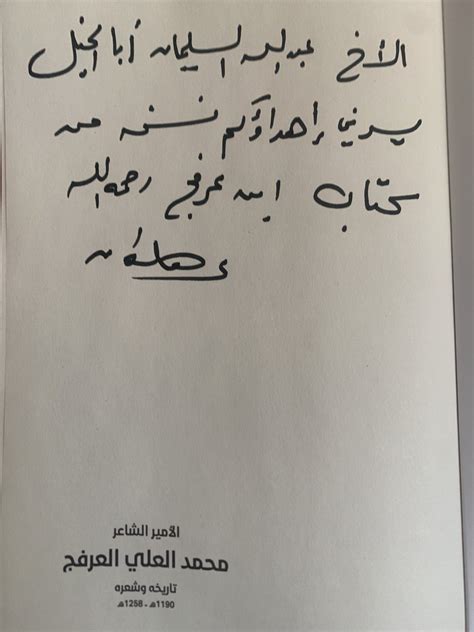 الأخ عبدالله السليمان أبا الخيل
يسرني إهداؤكم نسخة من
كتاب ابن عرفج رحمه الله
الأمير الشاعر
محمد العلي العرفج
تاريخه وشعره
1190هـ - 1258هـ